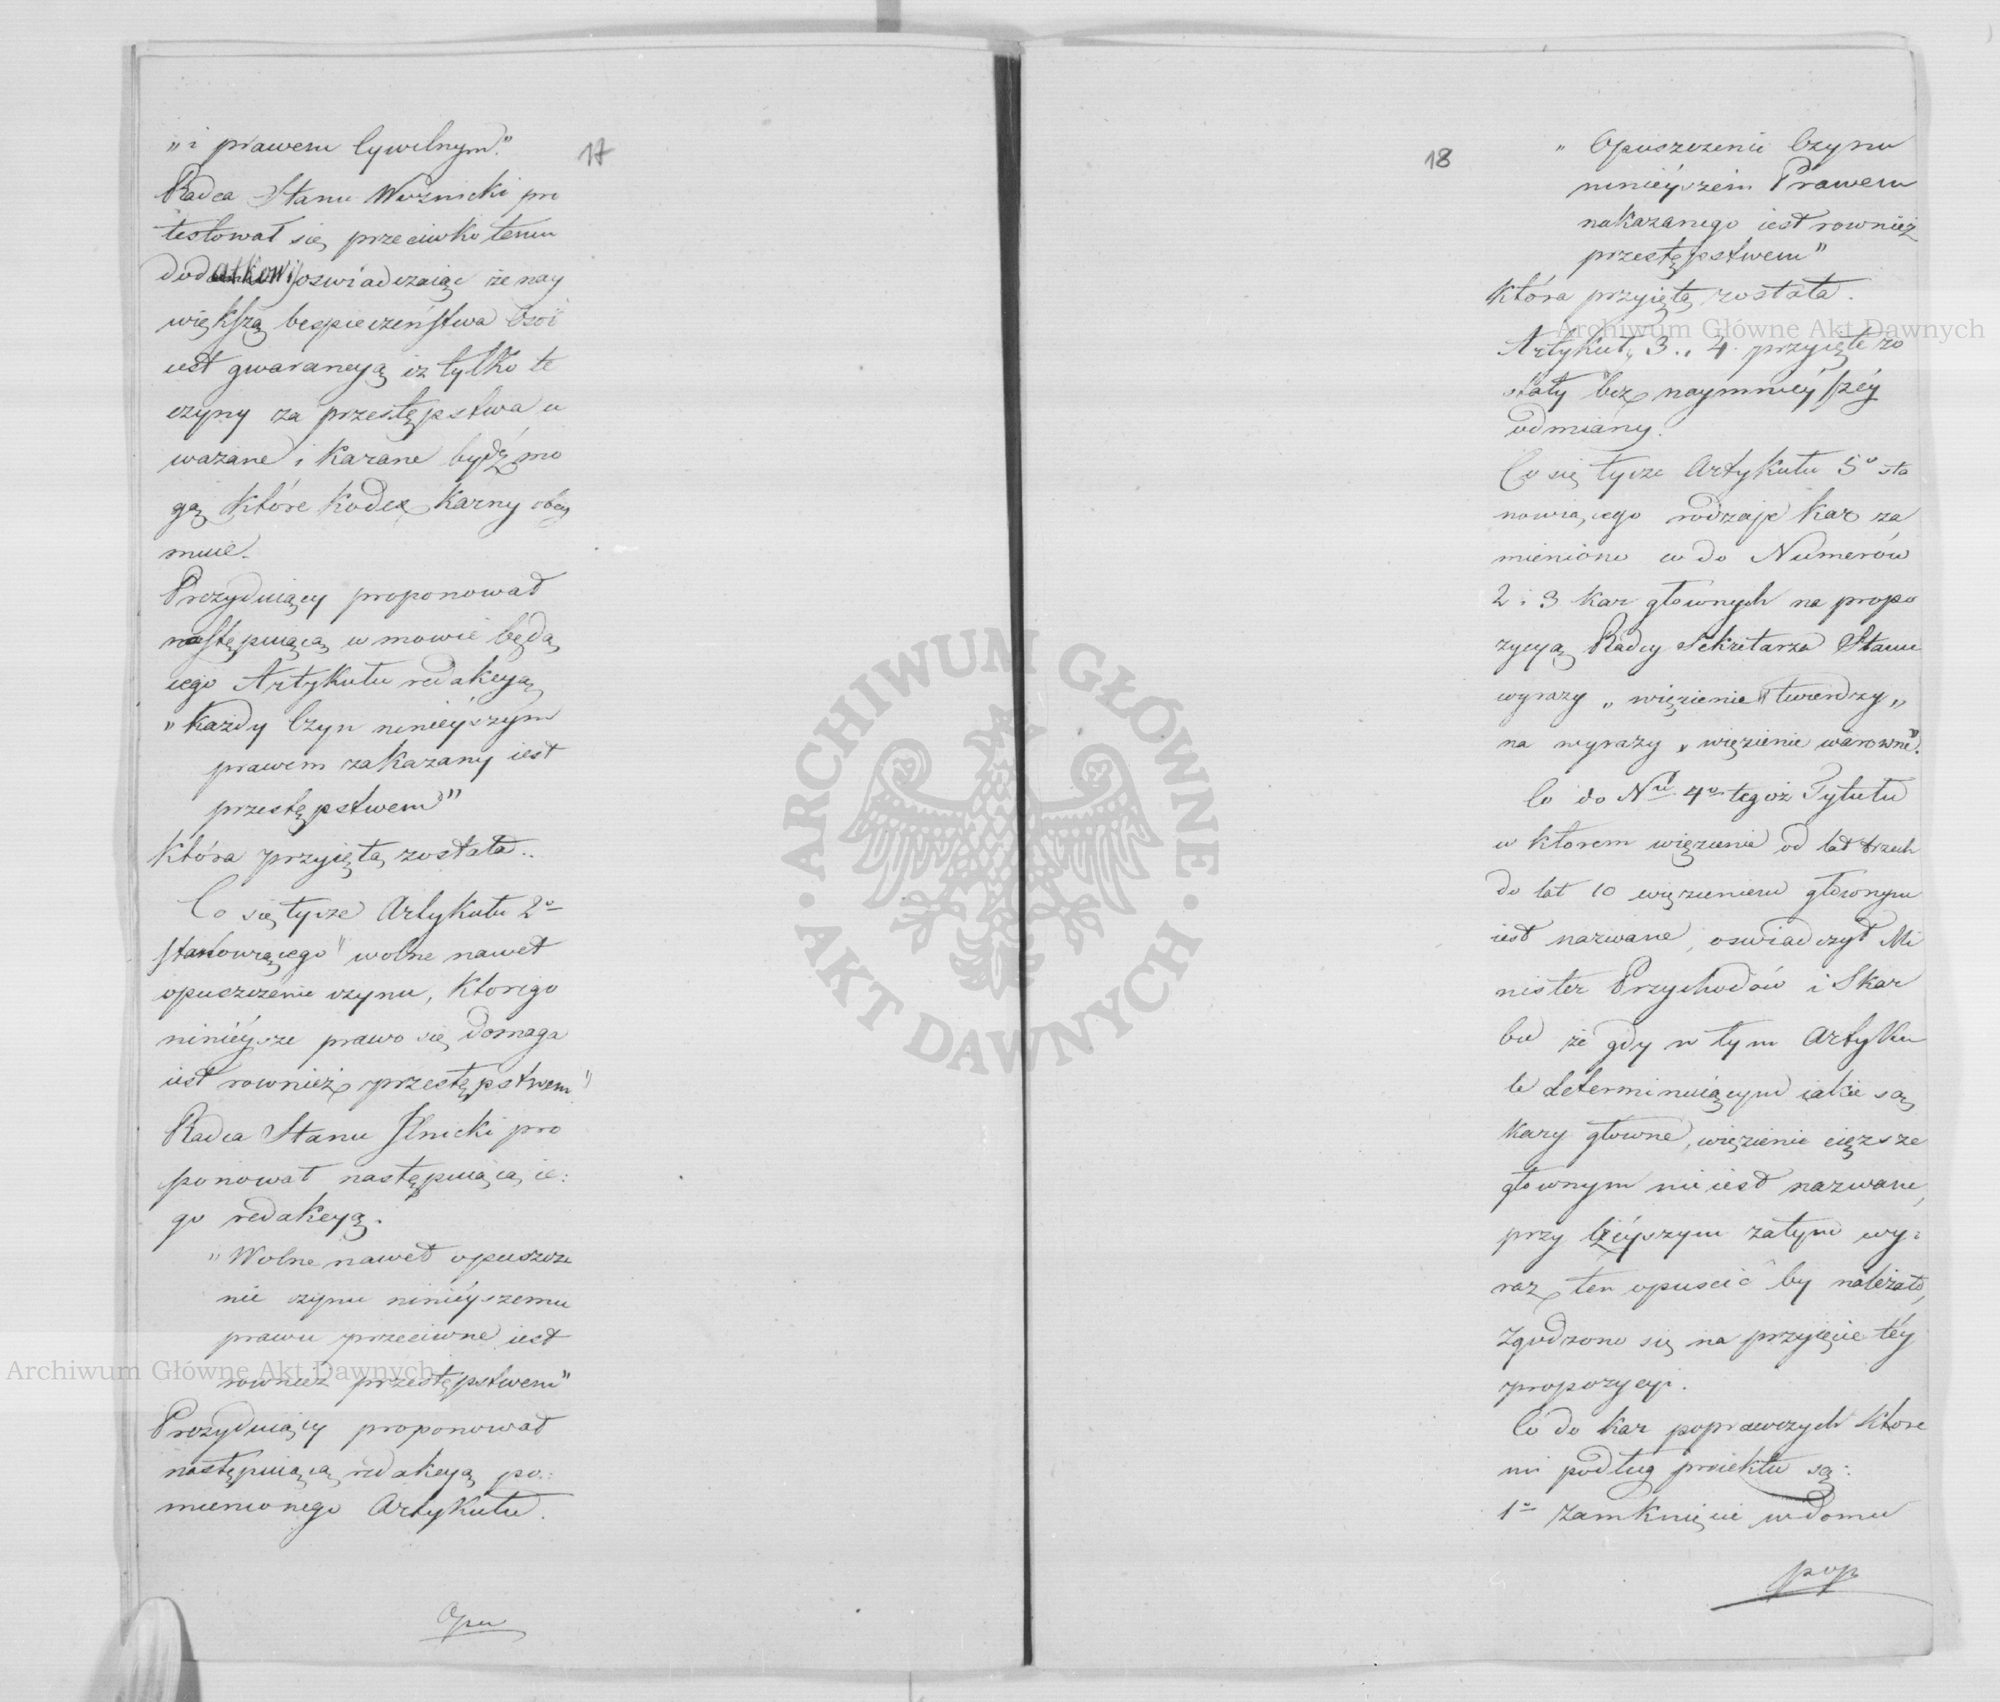 17
„i prawem Cywilnym."
Radca Stanu Woźnicki pro
testował się przeciwko temu
dodatkowi oswiadczaiąc że nay
większą bespieczeństwa Osób
iest gwarancyą iż tylko te
czyny za przestępstwa u
ważane i karane bydź mo
gą które kodex karny obey
muie.
Prezyduiący proponował
następuiącą w mowie będą
cego Artykułu redakcyą
„Każdy Czyn ninieyszym
prawem zakazany iest
przestępstwem"
która przyiętą została..
Co się tycze Artykułu 2º
stanowiącego "wolne nawet
opuszczenie czynu, ktorego
ninieysze prawo się domaga
iest rownież przestępstwem"
Radca Stanu Ilnicki pro
ponował następuiącą ie:
go redakcyą.
„Wolne nawet opuszcze
nie czynu ninieyszemu
prawu przeciwne iest
rownież przestępstwem"
Prezyduiący proponował
następuiącą redakcyą po:
mienionego Artykułu.
Opu
18
„Opuszczenie Czynu
ninieyszém Prawem
nakazanego iest rownież
przestępstwem"
Która przyiętą została.
Artykuły 3. i 4. przyięte zo
stały bez naymnieyszéy
odmiany.
Co się tycze Artykułu 5º sta
nowiącego rodzaje kar za
mieniono co do Numerów
2 i 3 kar głownych na propo
zycyą Radcy Sekretarza Stanu
wyrazy „więzienie twierdzy"
na wyrazy „więzienie warowne".
Co do Nru 4º tegoż Tytułu
w ktorem więzienie od lat trzech
do lat 10 więzieniem głównym
iest nazwane, oswiadczył Mi
nister Przychodów i Skar
bu że gdy w tym Artyku
le determinuiącym iakie są
kary głowne, więzienie cięższe
głownym nie iest nazwane,
przy lżéyszym zatym wy:
raz ten opuścić by należało,
Zgodzono się na przyięcie téy
propozycyi.
Co do kar poprawczych które
mi podług proiektu są:
1º zamknięcie w domu
pop
Archiwum Główne Akt Dawnych
Archiwum Główne Akt Dawnych
ARCHIWUM GŁÓWNE
AKT DAWNYCH